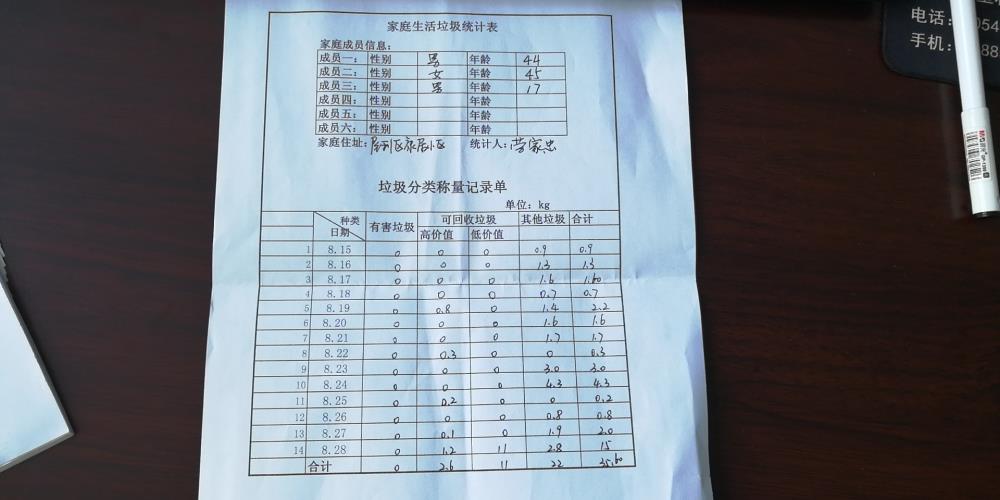 家庭生活垃圾统计表
家庭成员信息：
成员一： 性别 男 年龄 44
成员二： 性别 女 年龄 45
成员三： 性别 男 年龄 17
成员四： 性别 年龄
成员五： 性别 年龄
成员六： 性别 年龄
家庭住址： 统计人：劳家忠
垃圾分类称量记录单
单位：kg
种类 日期 有害垃圾 可回收垃圾 其他垃圾 合计
高价值 低价值
1 8.15 0 0 0 0.9 0.9
2 8.16 0 0 0 1.3 1.3
3 8.17 0 0 0 1.6 1.60
4 8.18 0 0 0 0.7 0.7
5 8.19 0 0.8 0 1.4 2.2
6 8.20 0 0 0 1.6 1.6
7 8.21 0 0 0 1.7 1.7
8 8.22 0 0.3 0 0 0.3
9 8.23 0 0 0 3.0 3.0
10 8.24 0 0 0 4.3 4.3
11 8.25 0 0.2 0 0 0.2
12 8.26 0 0 0 0.8 0.8
13 8.27 0 0.1 0 1.9 2.0
14 8.28 0 1.2 11 2.8 15
合计 0 2.6 11 22 35.60
电话： 054
手机： 88
M&G